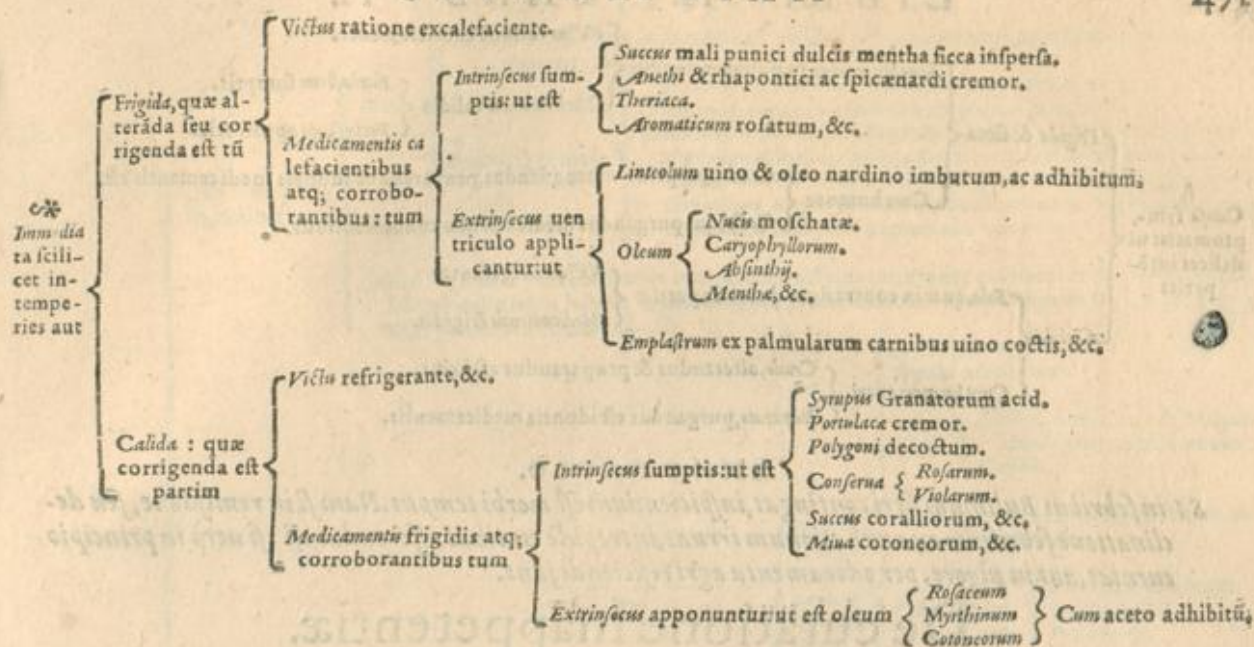 Victus ratione excalefaciente.
Frigida, quæ al-
terãda seu cor
rigenda est tũ
Medicamentis ca
lefacientibus
atq; corrobo-
rantibus: tum
Intrinsecus sum-
ptis: ut est
Succus mali punici dulcis mentha sicca inspersa.
Anethi & rhapontici ac spicænardi cremor.
Theriaca.
Aromaticum rosatum, &c.
Extrinsecus uen
triculo appli-
cantur: ut
Linteolum uino & oleo nardino imbutum, ac adhibitum.
Oleum
Nucis moschatæ.
Caryophyllorum.
Absinthij.
Menthæ, &c.
Emplastrum ex palmularum carnibus uino coctis, &c.
Immedia
ta scili-
cet in-
tempe-
ries aut
Calida : quæ
corrigenda est
partim
Victu refrigerante, &c.
Medicamentis frigidis atq;
corroborantibus tum
Intrinsecus sumptis: ut est
Syrupus Granatorum acid.
Portulacæ cremor.
Polygoni decoctum.
Conserua
Rosarum.
Violarum.
Succus coralliorum, &c.
Miua cotoneorum, &c.
Extrinsecus apponuntur: ut est oleum
Rosaceum
Myrthinum
Cotoneorum
Cum aceto adhibitũ.